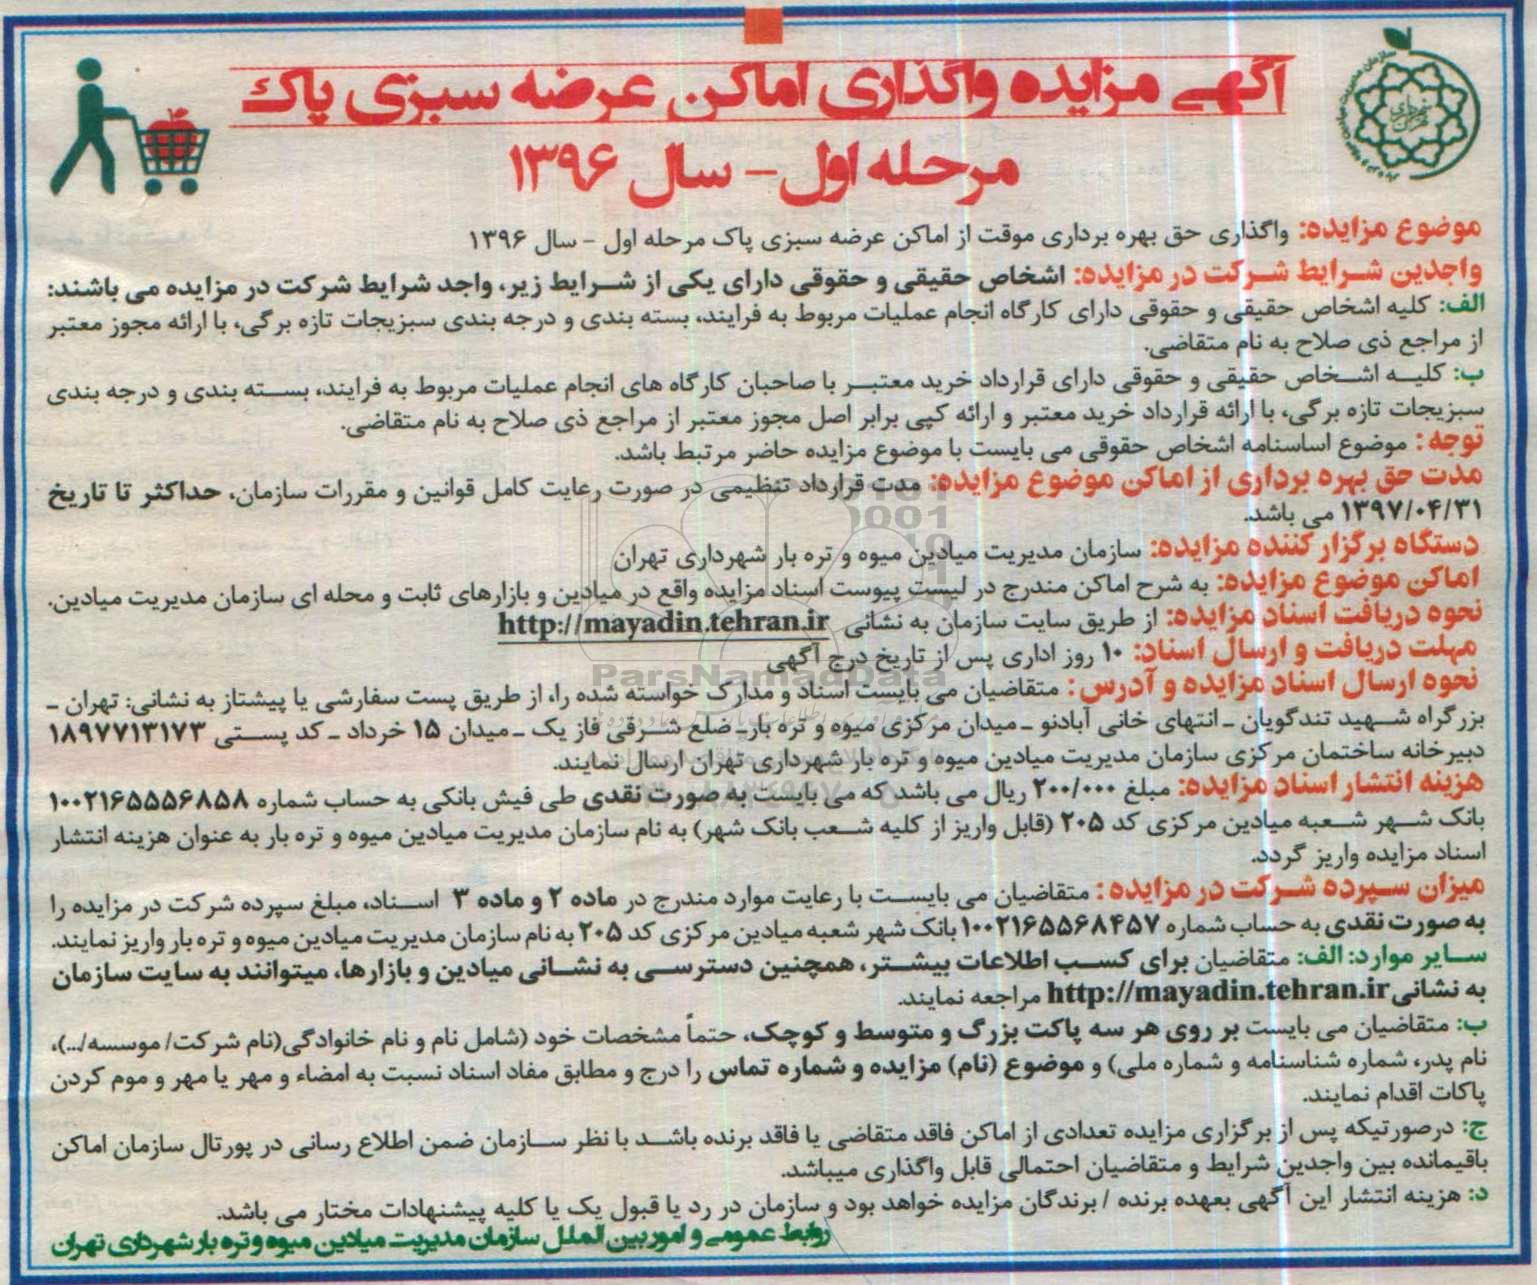 آگهی مزایده واگذاری اماکن عرضه سبزی پاک
مرحله اول - سال ۱۳۹۶
موضوع مزایده: واگذاری حق بهره برداری موقت از اماکن عرضه سبزی پاک مرحله اول - سال ۱۳۹۶
واجدین شرایط شرکت در مزایده: اشخاص حقیقی و حقوقی دارای یکی از شرایط زیر، واجد شرایط شرکت در مزایده می باشند:
الف: کلیه اشخاص حقیقی و حقوقی دارای کارگاه انجام عملیات مربوط به فرایند، بسته بندی و درجه بندی سبزیجات تازه برگی، با ارائه مجوز معتبر
از مراجع ذی صلاح به نام متقاضی.
ب: کلیه اشخاص حقیقی و حقوقی دارای قرارداد خرید معتبر با صاحبان کارگاه های انجام عملیات مربوط به فرایند، بسته بندی و درجه بندی
سبزیجات تازه برگی، با ارائه قرارداد خرید معتبر و ارائه کپی برابر اصل مجوز معتبر از مراجع ذی صلاح به نام متقاضی.
توجه: موضوع اساسنامه اشخاص حقوقی می بایست با موضوع مزایده حاضر مرتبط باشد.
مدت حق بهره برداری از اماکن موضوع مزایده: مدت قرارداد تنظیمی در صورت رعایت کامل قوانین و مقررات سازمان، حداکثر تا تاریخ
۱۳۹۷/۰۴/۳۱ می باشد.
دستگاه برگزار کننده مزایده: سازمان مدیریت میادین میوه و تره بار شهرداری تهران
اماکن موضوع مزایده: به شرح اماکن مندرج در لیست پیوست اسناد مزایده واقع در میادین و بازارهای ثابت و محله ای سازمان مدیریت میادین.
نحوه دریافت اسناد مزایده: از طریق سایت سازمان به نشانی http://mayadin.tehran.ir
مهلت دریافت و ارسال اسناد: ۱۰ روز اداری پس از تاریخ درج آگهی
ParsNamadData
نحوه ارسال اسناد مزایده و آدرس: متقاضیان می بایست اسناد و مدارک خواسته شده را، از طریق پست سفارشی یا پیشتاز به نشانی: تهران -
بزرگراه شهید تندگویان - انتهای خانی آبادنو - میدان مرکزی میوه و تره بار- ضلع شرقی فاز یک - میدان ۱۵ خرداد - کد پستی ۱۸۹۷۷۱۳۱۷۳
دبیرخانه ساختمان مرکزی سازمان مدیریت میادین میوه و تره بار شهرداری تهران ارسال نمایند.
هزینه انتشار اسناد مزایده: مبلغ ۲۰۰/۰۰۰ ریال می باشد که می بایست به صورت نقدی طی فیش بانکی به حساب شماره ۱۰۰۲۱۶۵۵۵۶۸۵۸
بانک شهر شعبه میادین مرکزی کد ۲۰۵ (قابل واریز از کلیه شعب بانک شهر) به نام سازمان مدیریت میادین میوه و تره بار به عنوان هزینه انتشار
اسناد مزایده واریز گردد.
میزان سپرده شرکت در مزایده: متقاضیان می بایست با رعایت موارد مندرج در ماده ۲ و ماده ۳ اسناد، مبلغ سپرده شرکت در مزایده را
به صورت نقدی به حساب شماره ۱۰۰۲۱۶۵۵۶۸۴۵۷ بانک شهر شعبه میادین مرکزی کد ۲۰۵ به نام سازمان مدیریت میادین میوه و تره بار واریز نمایند.
سایر موارد: الف: متقاضیان برای کسب اطلاعات بیشتر، همچنین دسترسی به نشانی میادین و بازارها، میتوانند به سایت سازمان
به نشانی http://mayadin.tehran.ir مراجعه نمایند.
ب: متقاضیان می بایست بر روی هر سه پاکت بزرگ و متوسط و کوچک، حتماً مشخصات خود (شامل نام و نام خانوادگی(نام شرکت/ موسسه/...)،
نام پدر، شماره شناسنامه و شماره ملی) و موضوع (نام) مزایده و شماره تماس را درج و مطابق مفاد اسناد نسبت به امضاء و مهر یا مهر و موم کردن
پاکات اقدام نمایند.
ج: درصورتیکه پس از برگزاری مزایده تعدادی از اماکن فاقد متقاضی یا فاقد برنده باشد با نظر سازمان ضمن اطلاع رسانی در پورتال سازمان اماکن
باقیمانده بین واجدین شرایط و متقاضیان احتمالی قابل واگذاری میباشد.
د: هزینه انتشار این آگهی بعهده برنده / برندگان مزایده خواهد بود و سازمان در رد یا قبول یک یا کلیه پیشنهادات مختار می باشد.
روابط عمومی و امور بین الملل سازمان مدیریت میادین میوه و تره بار شهرداری تهران